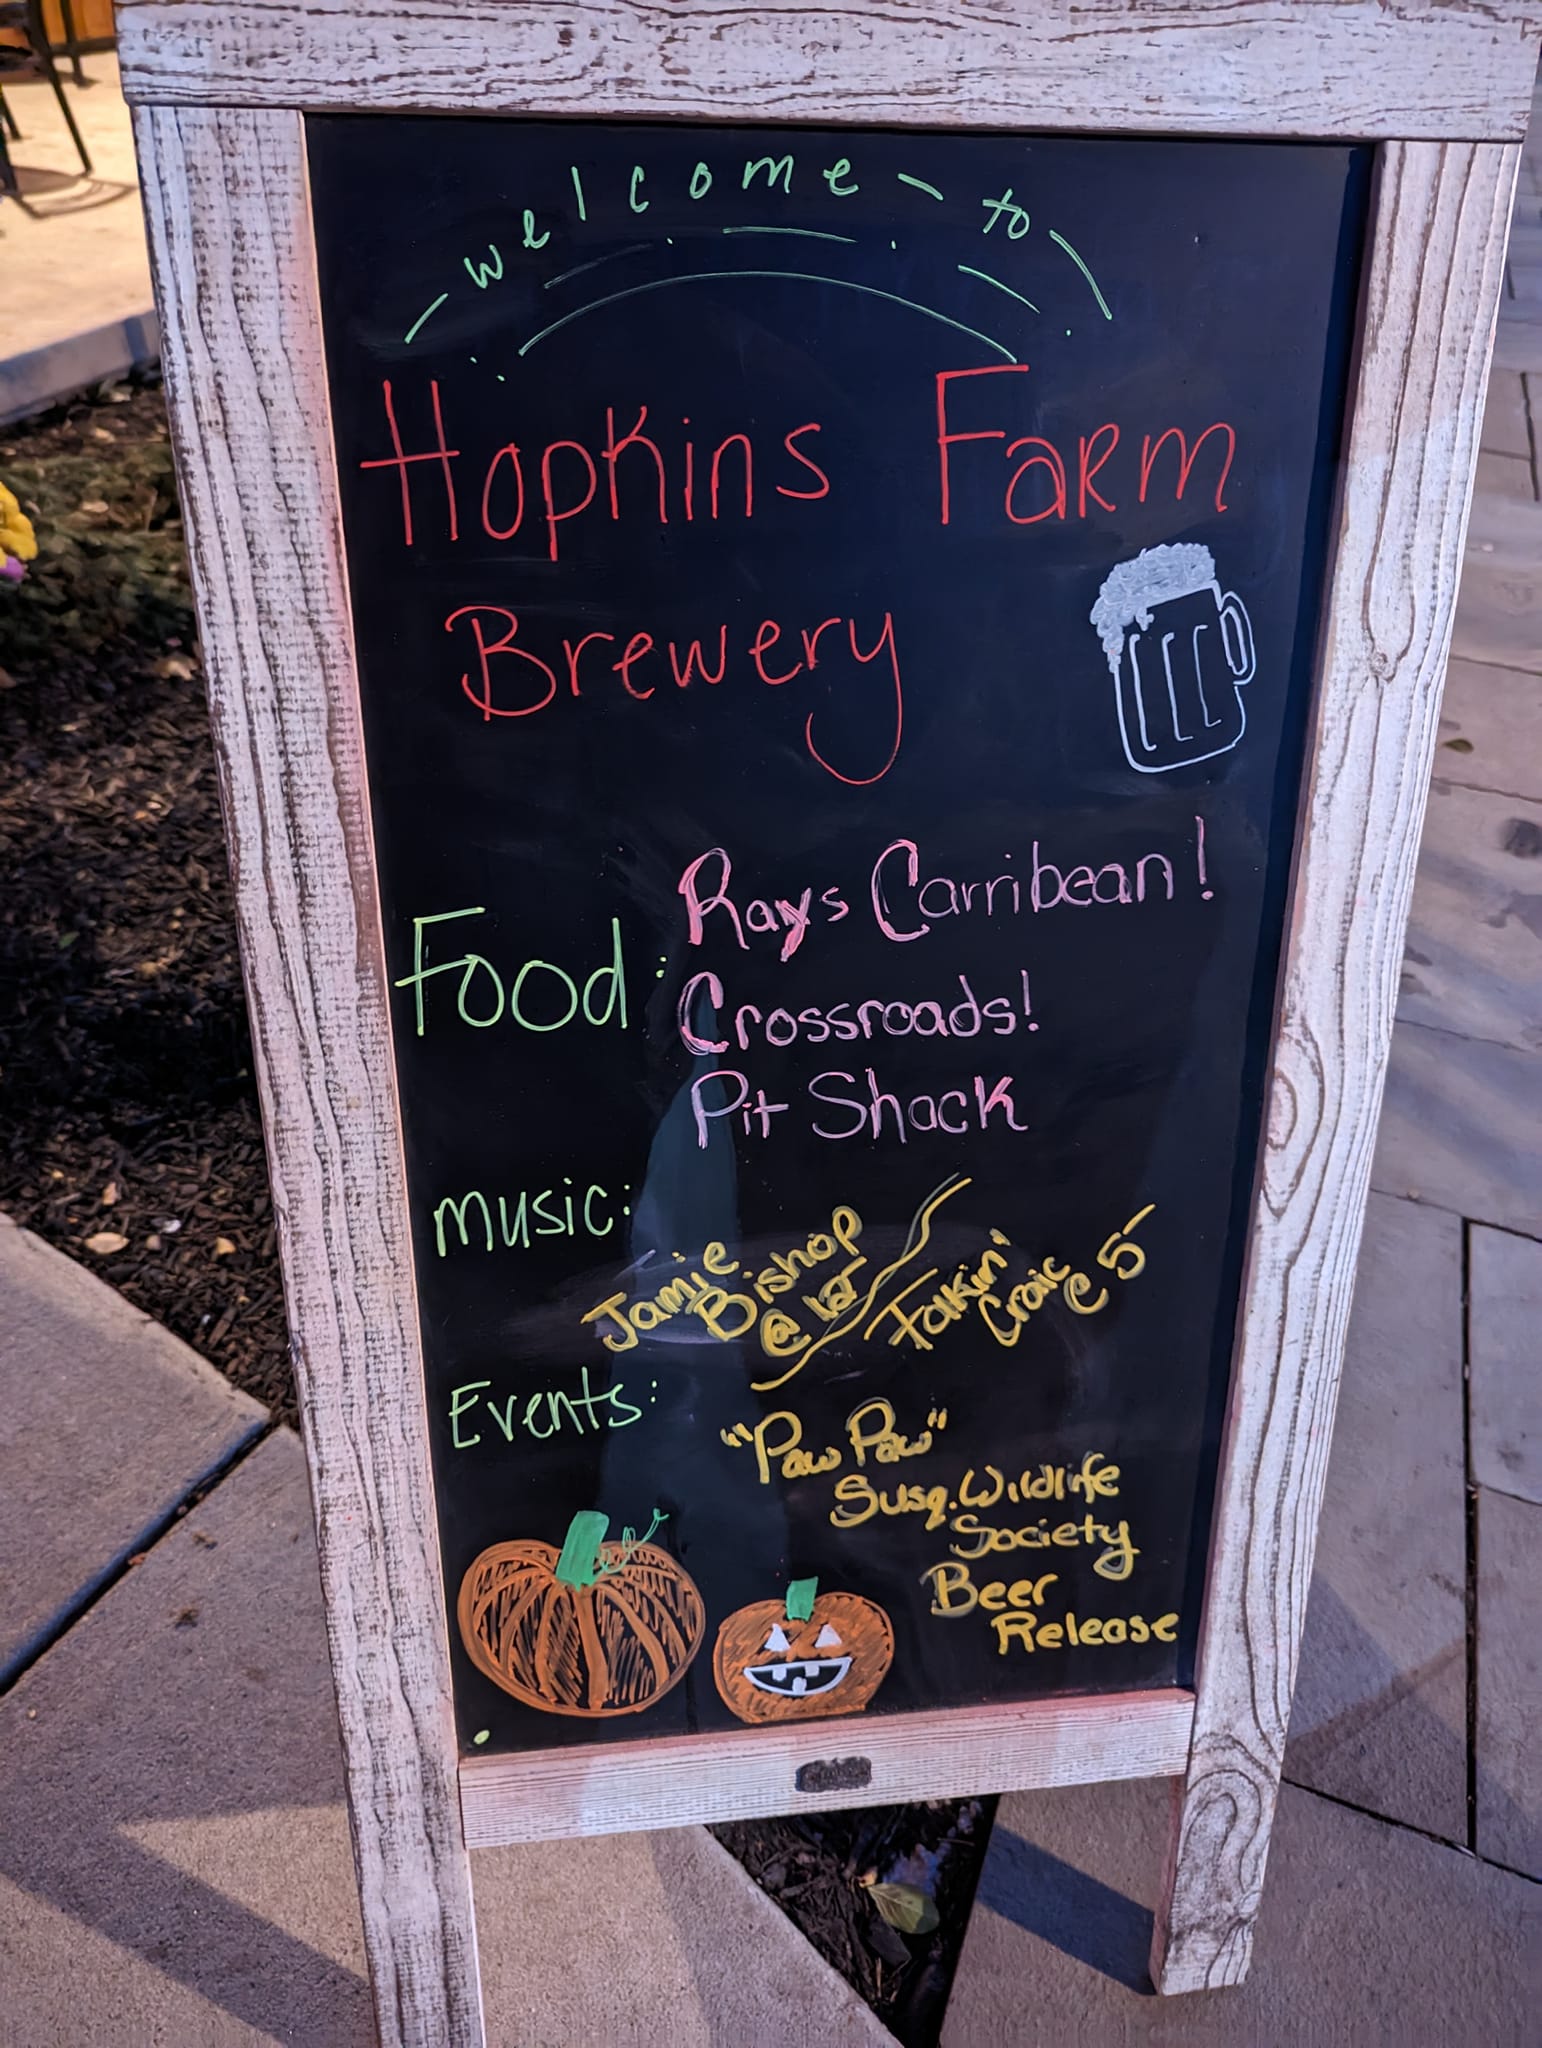 welcome to
Hopkins Farm
Brewery
Food:
Rays Carribean!
Crossroads!
Pit Shack
music:
Jamie
Bishop
@ 12
Falkin'
Craic
@ 5
Events:
"Paw Paw"
Susq. Wildlife
Society
Beer
Release